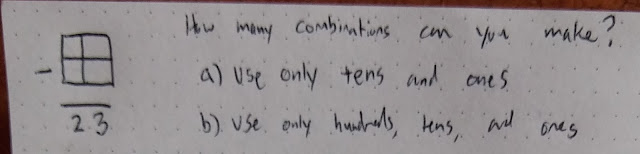 How many combinations can you make?
a) Use only tens and ones
b) Use only hundreds, tens, and ones
-
23